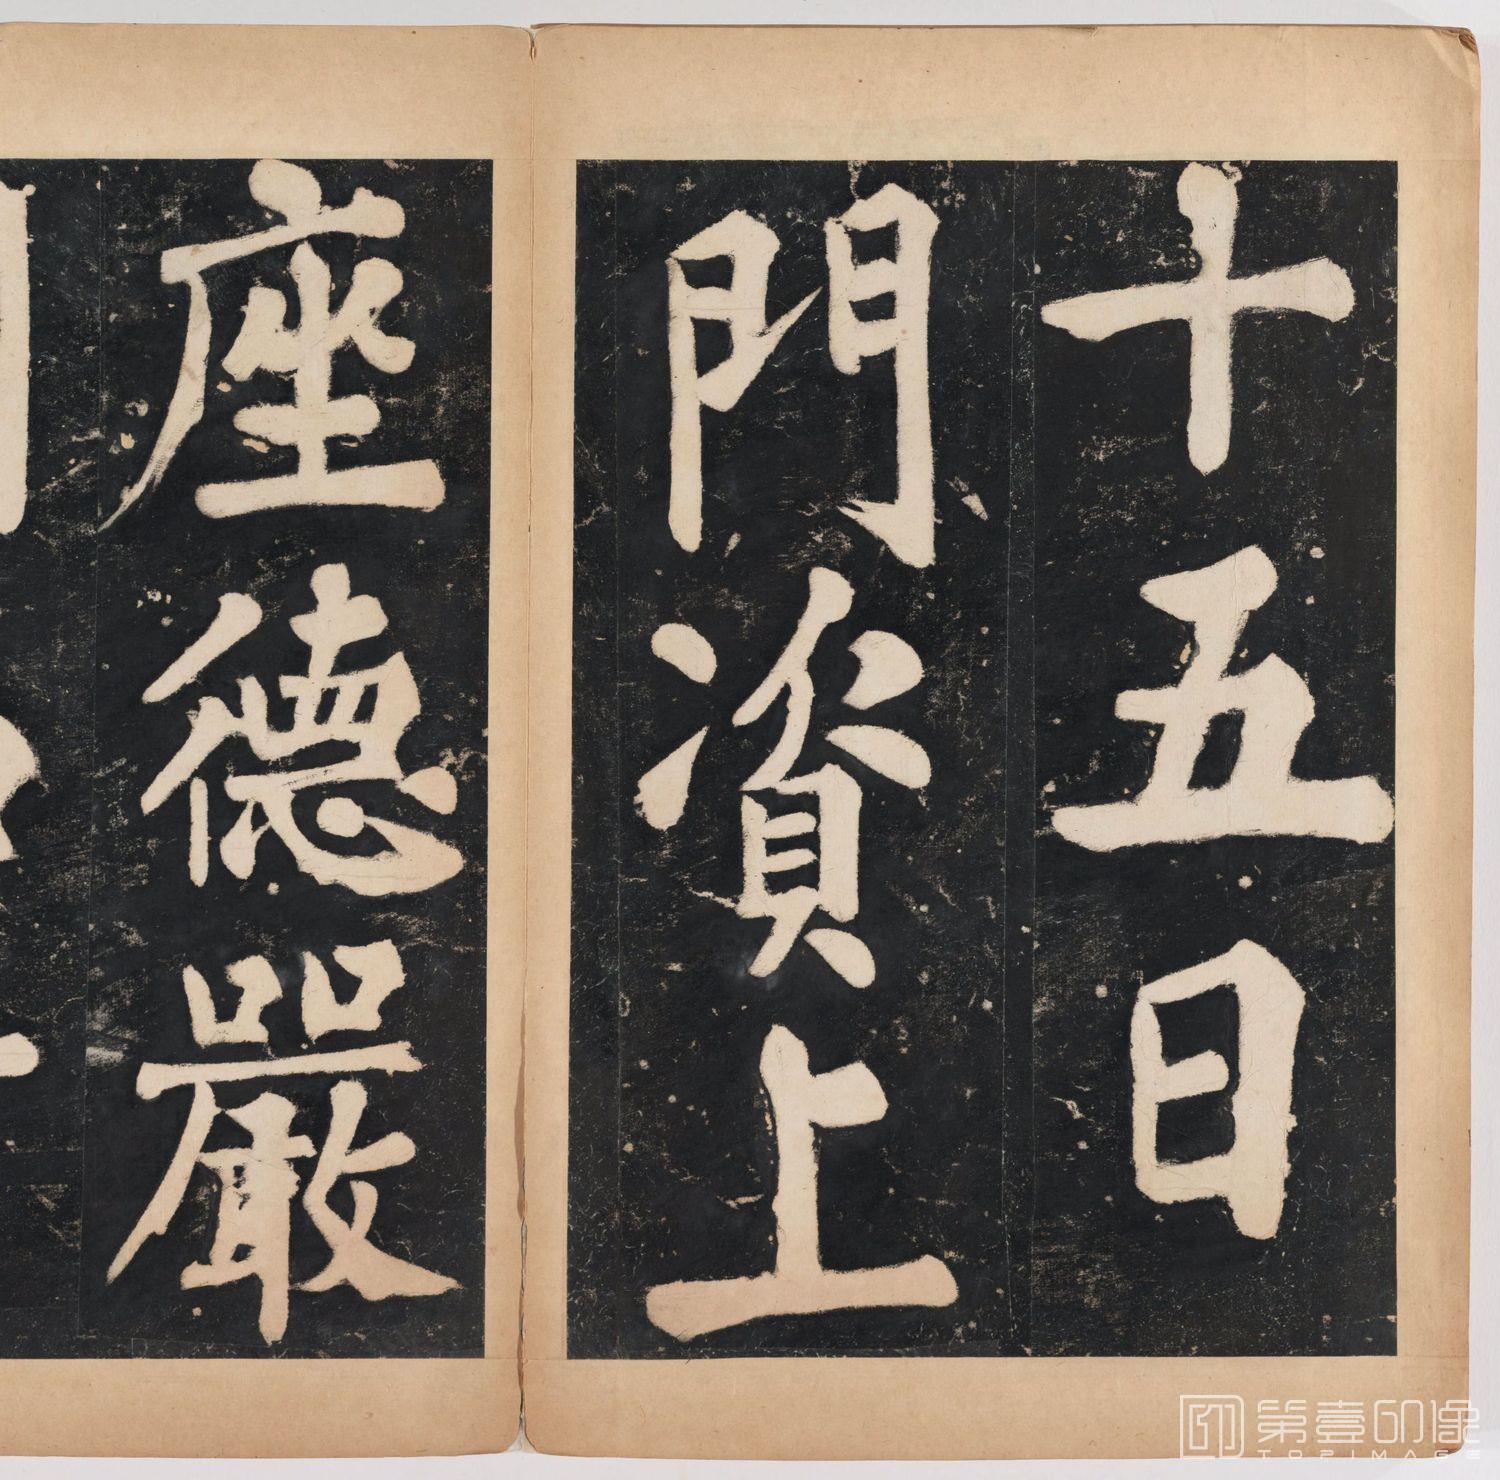 十五日
門資上
座德嚴
第壹印像
TOPIMAGE